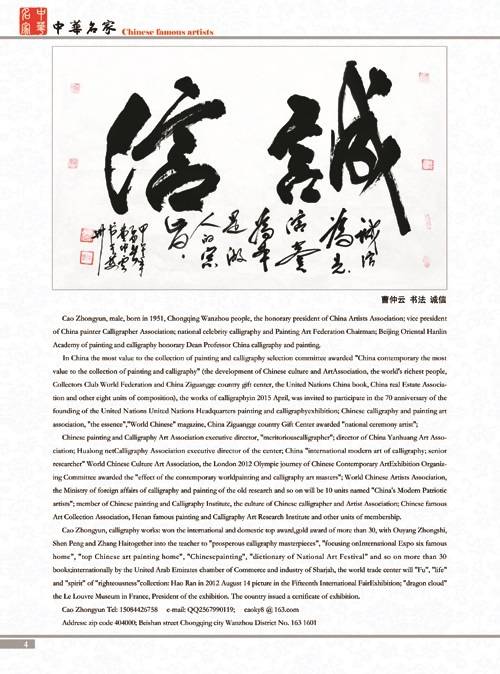 中華名家
中華名家 Chinese famous artists
誠信
誠信
為先
溶養
為本
是做
人的宗
旨
曹仲云 书法 诚信
Cao Zhongyun, male, born in 1951, Chongqing Wanzhou people, the honorary president of China Artists Association; vice president
of China painter Calligrapher Association; national celebrity calligraphy and Painting Art Federation Chairman; Beijing Oriental Hanlin
Academy of painting and calligraphy honorary Dean Professor China calligraphy and painting.
In China the most value to the collection of painting and calligraphy selection committee awarded "China contemporary the most
value to the collection of painting and calligraphy" (the development of Chinese culture and ArtAssociation, the world's richest people,
Collectors Club World Federation and China Ziguangge country gift center, the United Nations China book, China real Estate Associa-
tion and other eight units of composition), the works of calligraphyin 2015 April, was invited to participate in the 70 anniversary of the
founding of the United Nations United Nations Headquarters painting and calligraphyexhibition; Chinese calligraphy and painting art
association, "the essence","World Chinese" magazine, China Ziguangge country Gift Center awarded "national ceremony artist";
Chinese painting and Calligraphy Art Association executive director, "meritoriouscalligrapher"; director of China Yanhuang Art Asso-
ciation; Hualong netCalligraphy Association executive director of the center; China "international modern art of calligraphy; senior
researcher" World Chinese Culture Art Association, the London 2012 Olympic journey of Chinese Contemporary ArtExhibition Organiz-
ing Committee awarded the "effect of the contemporary worldpainting and calligraphy art masters"; World Chinese Artists Association,
the Ministry of foreign affairs of calligraphy and painting of the old research and so on will be 10 units named "China's Modern Patriotic
artists"; member of Chinese painting and Calligraphy Institute, the culture of Chinese calligrapher and Artist Association; Chinese famous
Art Collection Association, Henan famous painting and Calligraphy Art Research Institute and other units of membership.
Cao Zhongyun, calligraphy works: won the international and domestic top award,gold award of more than 30, with Ouyang Zhongshi,
Shen Peng and Zhang Haitogether into the teacher to "prosperous calligraphy masterpieces", "focusing onInternational Expo six famous
home", "top Chinese art painting home", "Chinesepainting", "dictionary of National Art Festival" and so on more than 30
books;internationally by the United Arab Emirates chamber of Commerce and industry of Sharjah, the world trade center will "Fu", "life"
and "spirit" of "righteousness"collection: Hao Ran in 2012 August 14 picture in the Fifteenth International FairExhibition; "dragon cloud"
the Le Louvre Museum in France, President of the exhibition. The country issued a certificate of exhibition.
Cao Zhongyun Tel: 15084426758 e-mail: QQ2567990119; caoky8 @ 163.com
Address: zip code 404000; Beishan street Chongqing city Wanzhou District No. 163 1601
4